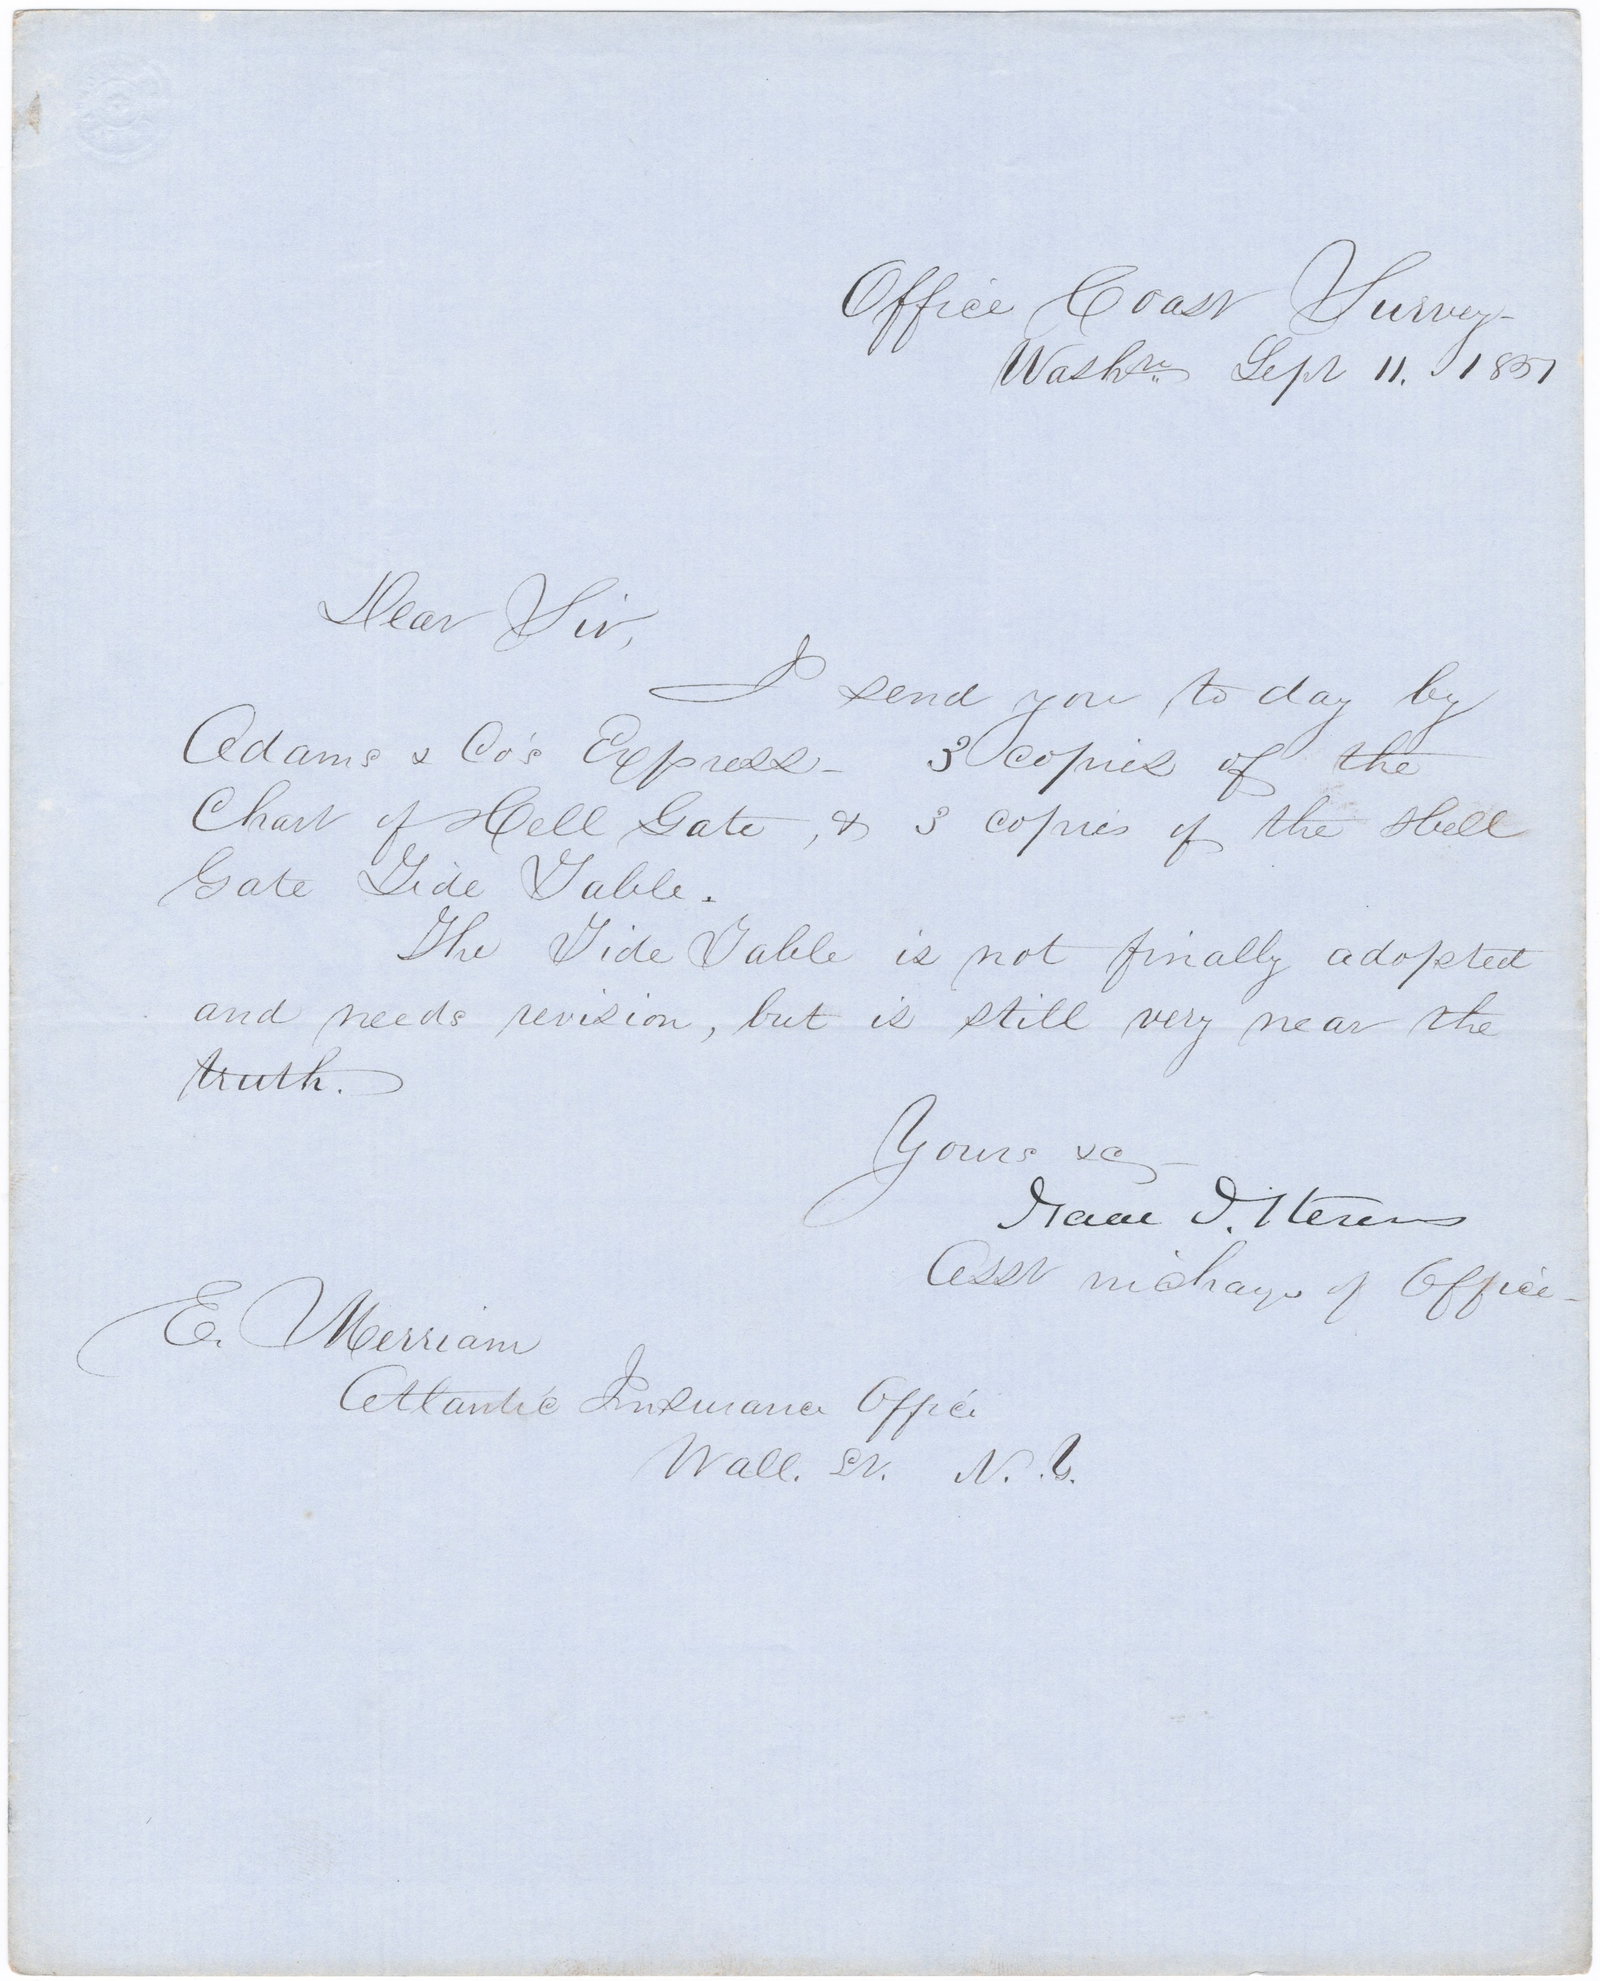 Office Coast Survey-
Washn. Sept 11. 1851
Dear Sir,
I send you to day by
Adams & Co's Express - 3 copies of the
Chart of Hell Gate, & 3 copies of the Hell
Gate Tide Table.
The Tide Table is not finally adopted
and needs revision, but is still very near the
truth.
Yours &c -
Isaac I. Stevens
Asst in charge of Office -
E. Merriam
Atlantic Insurance Office
Wall. St. N. Y.